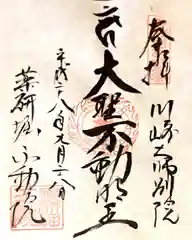 奉拝
川崎大師別院
大聖不動明王
平成二八年九月二八日
薬研堀不動院